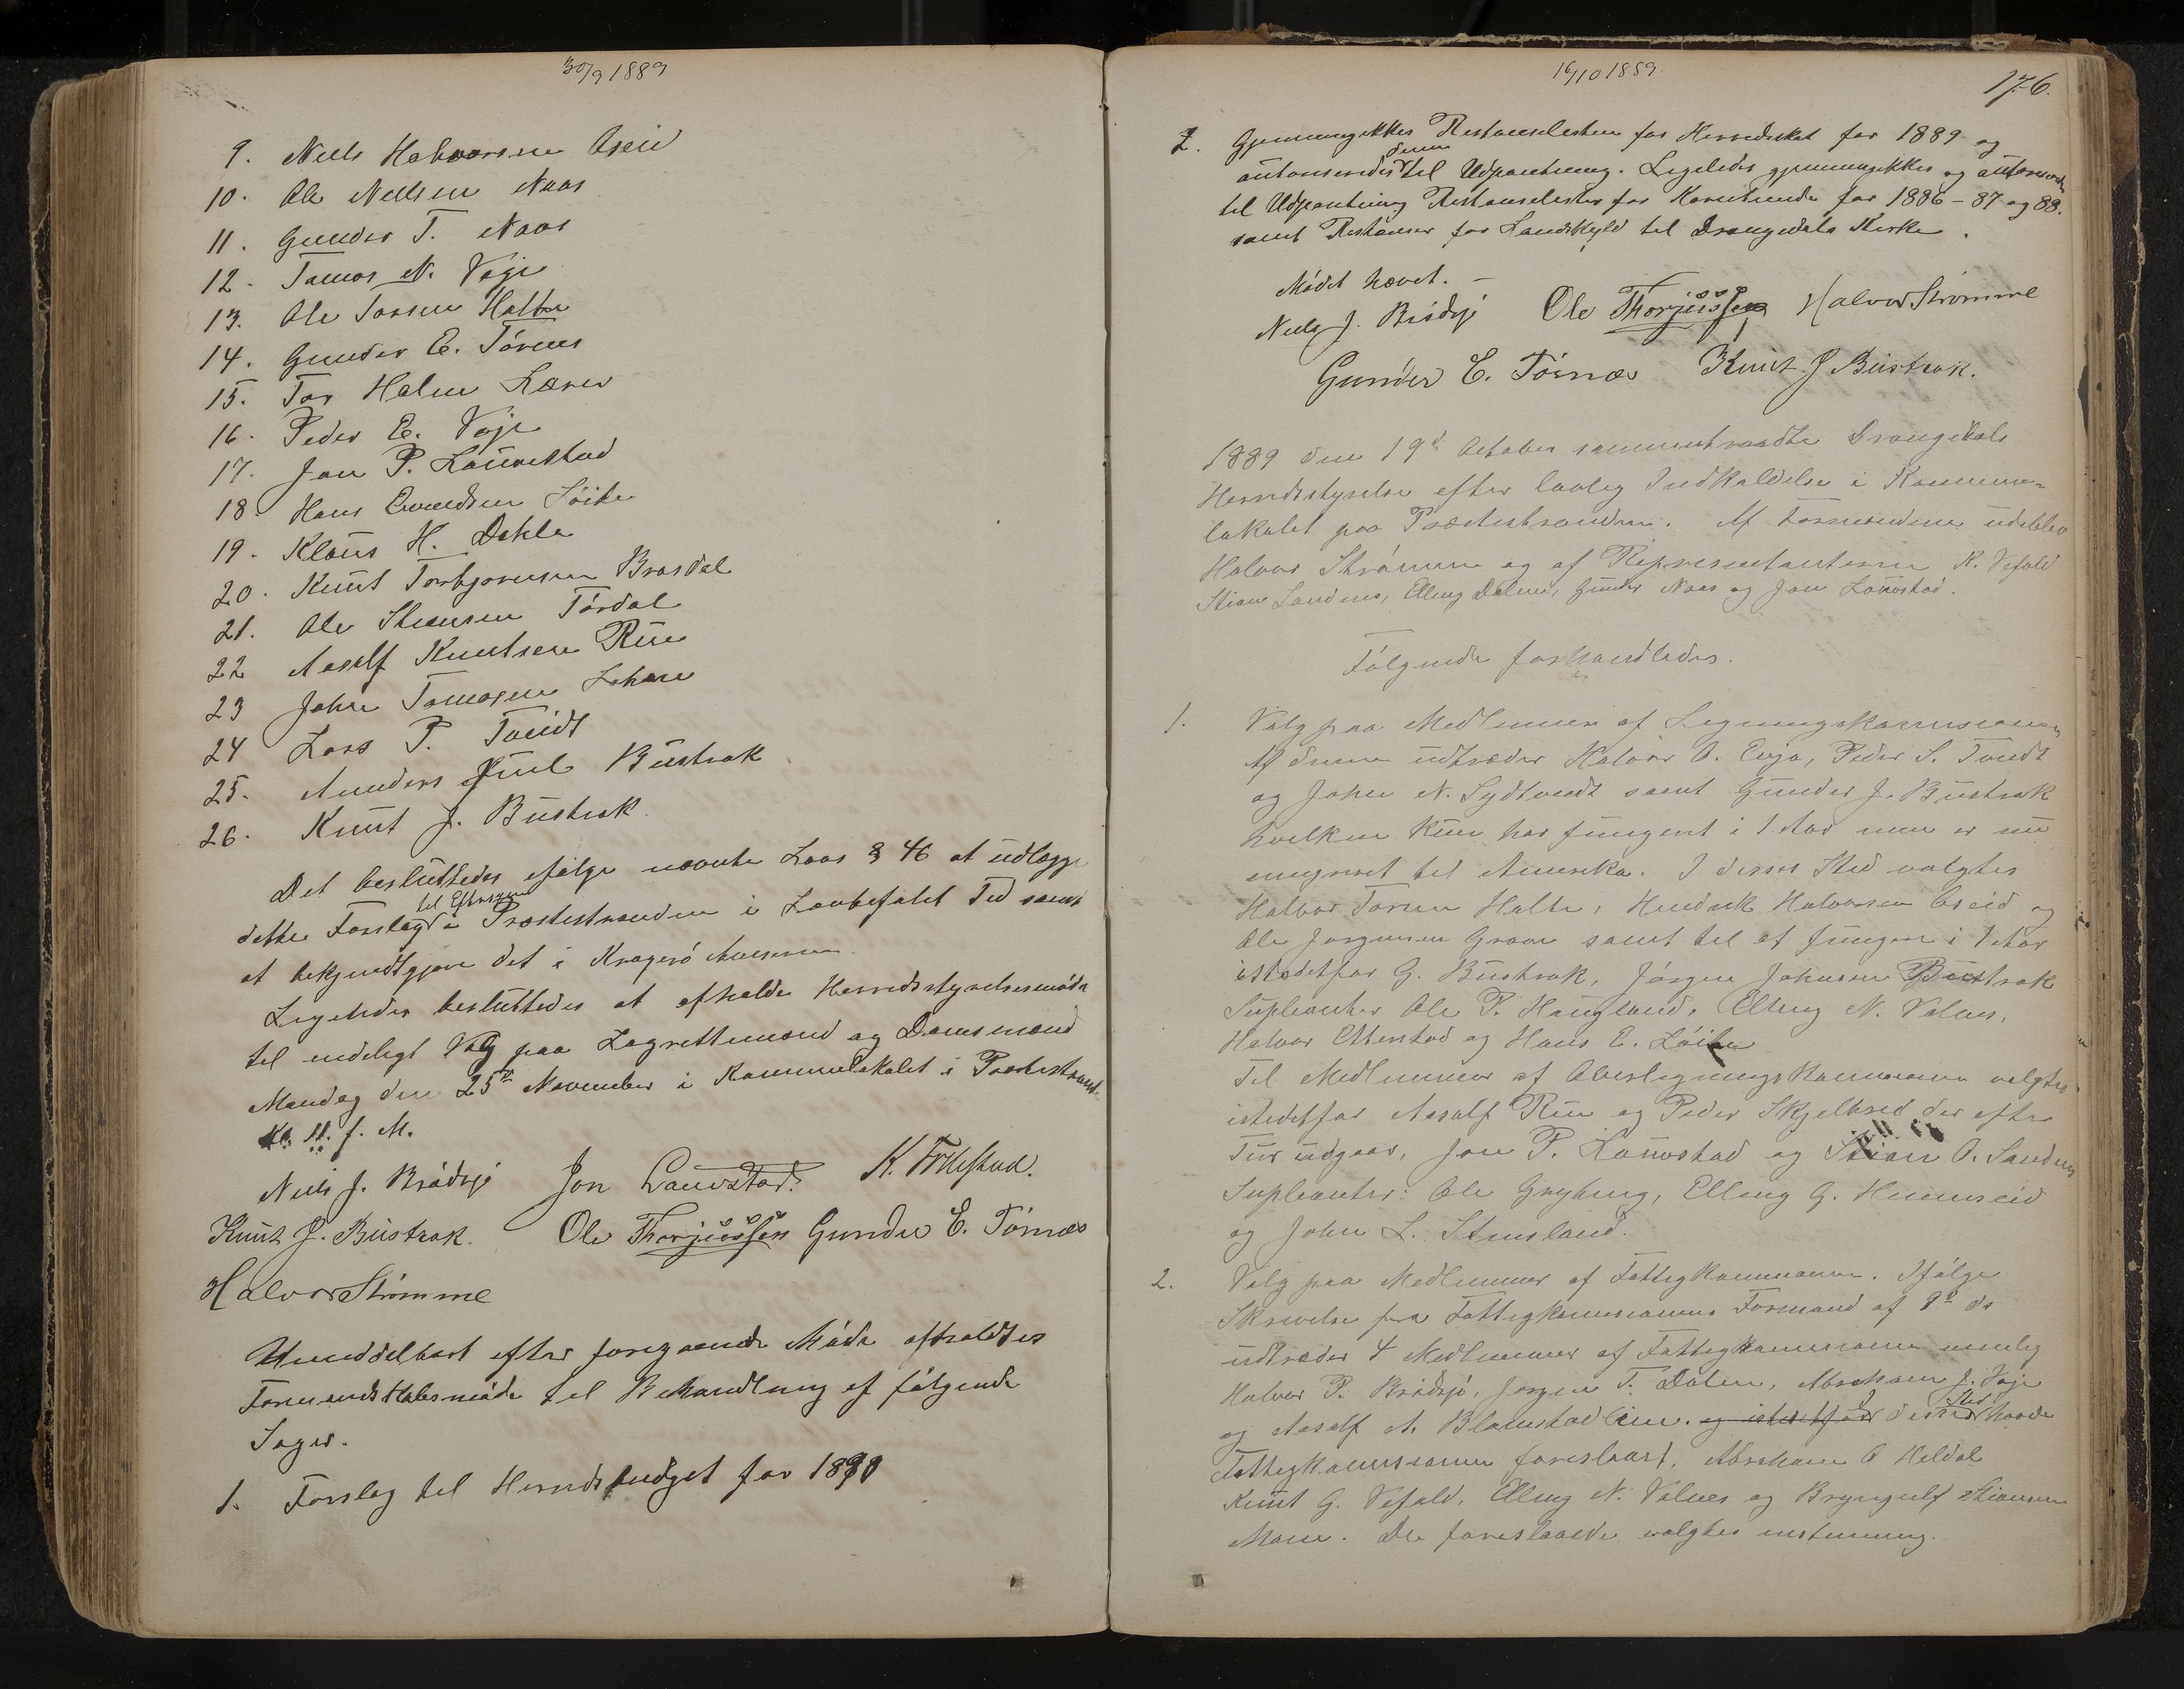 30/9 1889
9. Niels Halvorsen Aseid
10. Ole Nielsen Naas
11. Gunder T. Naas
12. Tomas N. Voje
13. Ole Torsen Holte
14. Gunder E. Törnes
15. Tor Holm Lærer
16. Peder E. Voje
17. Jon P. Lauvestad
18. Hans Evendsen Löite
19. Klaus H. Dahle
20. Knut Torbjørnsen Brosdal
21. Ole Steansen Tördal
22 Aasulf Knutsen Rui
23 John Tomasen
24 Lars P. Tveidt
25. Anders Juul Bustrak
26. Knut J. Bustrak
Det besluttedes ifølge nævnte Lovs § 46 at udlægge
dette Forslag til Eftersyn i Præstestranden i Lovbefalet Tid samt
at bekjendtgjøre det i Kragerö Avisen
Ligeledes besluttedes at afholde Herredsstyrelsesmöde
til endeligt Valg paa Lagrettemænd og Domsmænd
Mandag den 25de November i Kommunelokalet i Præstestrand
Kl. 11. f. M.
Niels J. Brödsjö Jon Lauvstad. K. Tveitstad.
Knut J. Bustrak. Ole Thorjussen Gunder E. Törnæs
Halvor Strømme
Umiddelbart efter foregaaende Möde afholdtes
Formandskabsmöde til Behandling af fölgende
Sager.
1. Forslag til Herredsbudget for 1890
16/10 1889
176.
2. Gjennemgikkes Restanselisten for Herredsskat for 1889 og
autoriseredes denne til Udpantning. Ligeledes gjennemgikkes og autoriseredes
til Udpantning Restanselister for Korntiende for 1886-87 og 88.
samt Restanser for Landskyld til Drangedals Kirke.
Mödet hævet. -
Niels J. Brödsjö Ole Thorjussen Halvor Strømme
Gunder E. Törnæs Knut J Bustrak.
1889 den 19d October sammentraadte Drangedals
Herredsstyrelse efter lovlig Indkaldelse i Kommune-
lokalet paa Præstestranden. Af Formændene udeblev
Halvor Strömme og af Repræsentanterne K. Vefald
Stian Sandnes, Elling Dalen, Gunder Naas og Jon Lauvstad.
Fölgende forhandledes.
1. Valg paa Medlemmer af Ligningskommissionen
Af denne udtræder Halvor O. Eija, Peder S. Tveidt
og John N. Sydtveidt samt Gunder J. Bustrak
hvilken kun har fungeret i 1 Aar men er nu
emigreret til Amerika. I deres Sted valgtes
Halvor Torsen Holte, Hendrik Halvorsen Aseid og
Ole Jörgensen Graver samt til at fungere i 1 Aar
istedetfor G. Bustrak, Jörgen Johnsen Bustrak
Supleanter Ole P. Haugland, Elling N. Valnes,
Halvor Ettestad og Hans E. Löite
Til Medlemmer af Overligningskommissionen valgtes
istedetfor Aasulf Rui og Peder Skjelbred der efter
Tur udgaar, Jon P. Lauvstad og Stian O. Sandnes
Supleanter: Ole Gryting, Elling G. Henneseid
og John L. Stensland.
2. Valg paa Medlemmer af Fattigkommissionen. Ifölge
Skrivelse fra Fattigkommissionens Formand af 9d ds
udtræder 4 Medlemmer af Fattigkommissionen nemlig
Halvor P. Brödsjö, Jörgen T. Dalen, Abraham J. Voje
og Aasulf A. Blomstadlien. og istedetfor I disses Sted havde
Fattigkommissionen foreslaaet, Abraham O Heldal
Knut G. Vefald, Elling N. Valnes og Brynjulf Stiansen
Moen. De foreslaaede valgtes enstemmig.